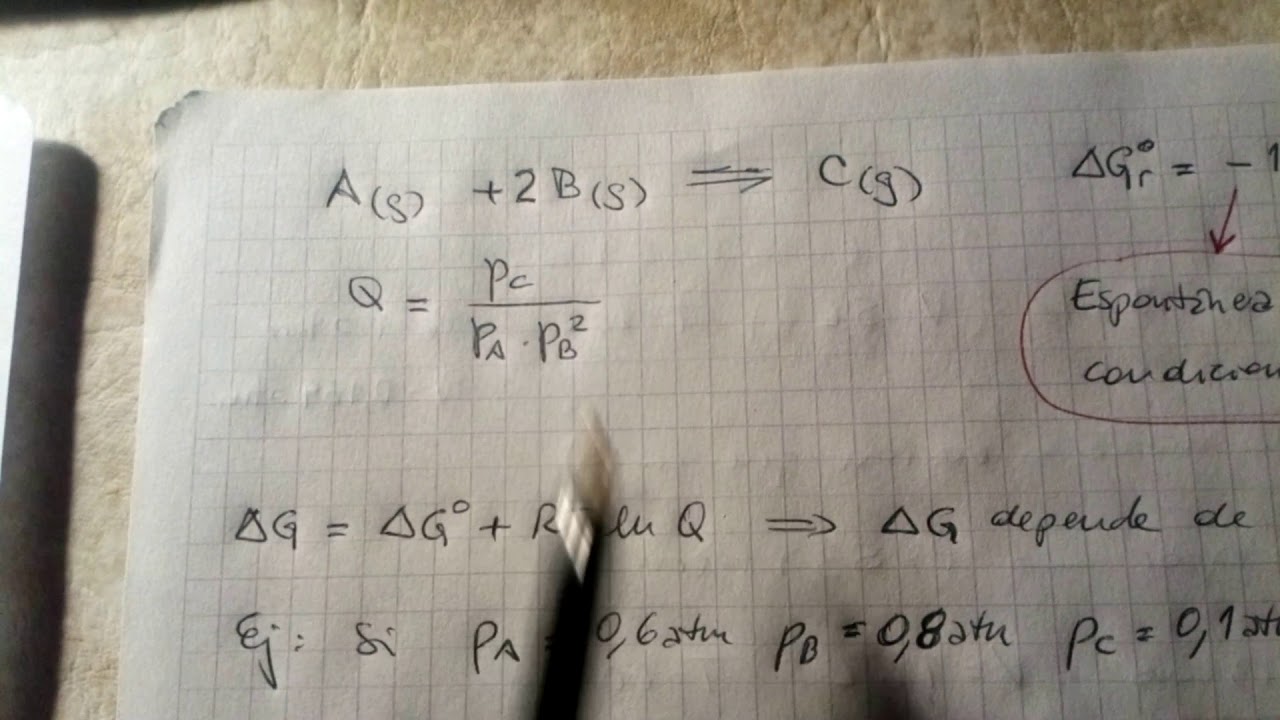 A(g) + 2B(g) ⇌ C(g) ΔGr° = -1
Q = pC / pA · pB²
Espontánea
condicion
ΔG = ΔG° + R ln Q ⇒ ΔG depende de
Ej: Si pA = 0,6 atm pB = 0,8 atm pC = 0,1 at